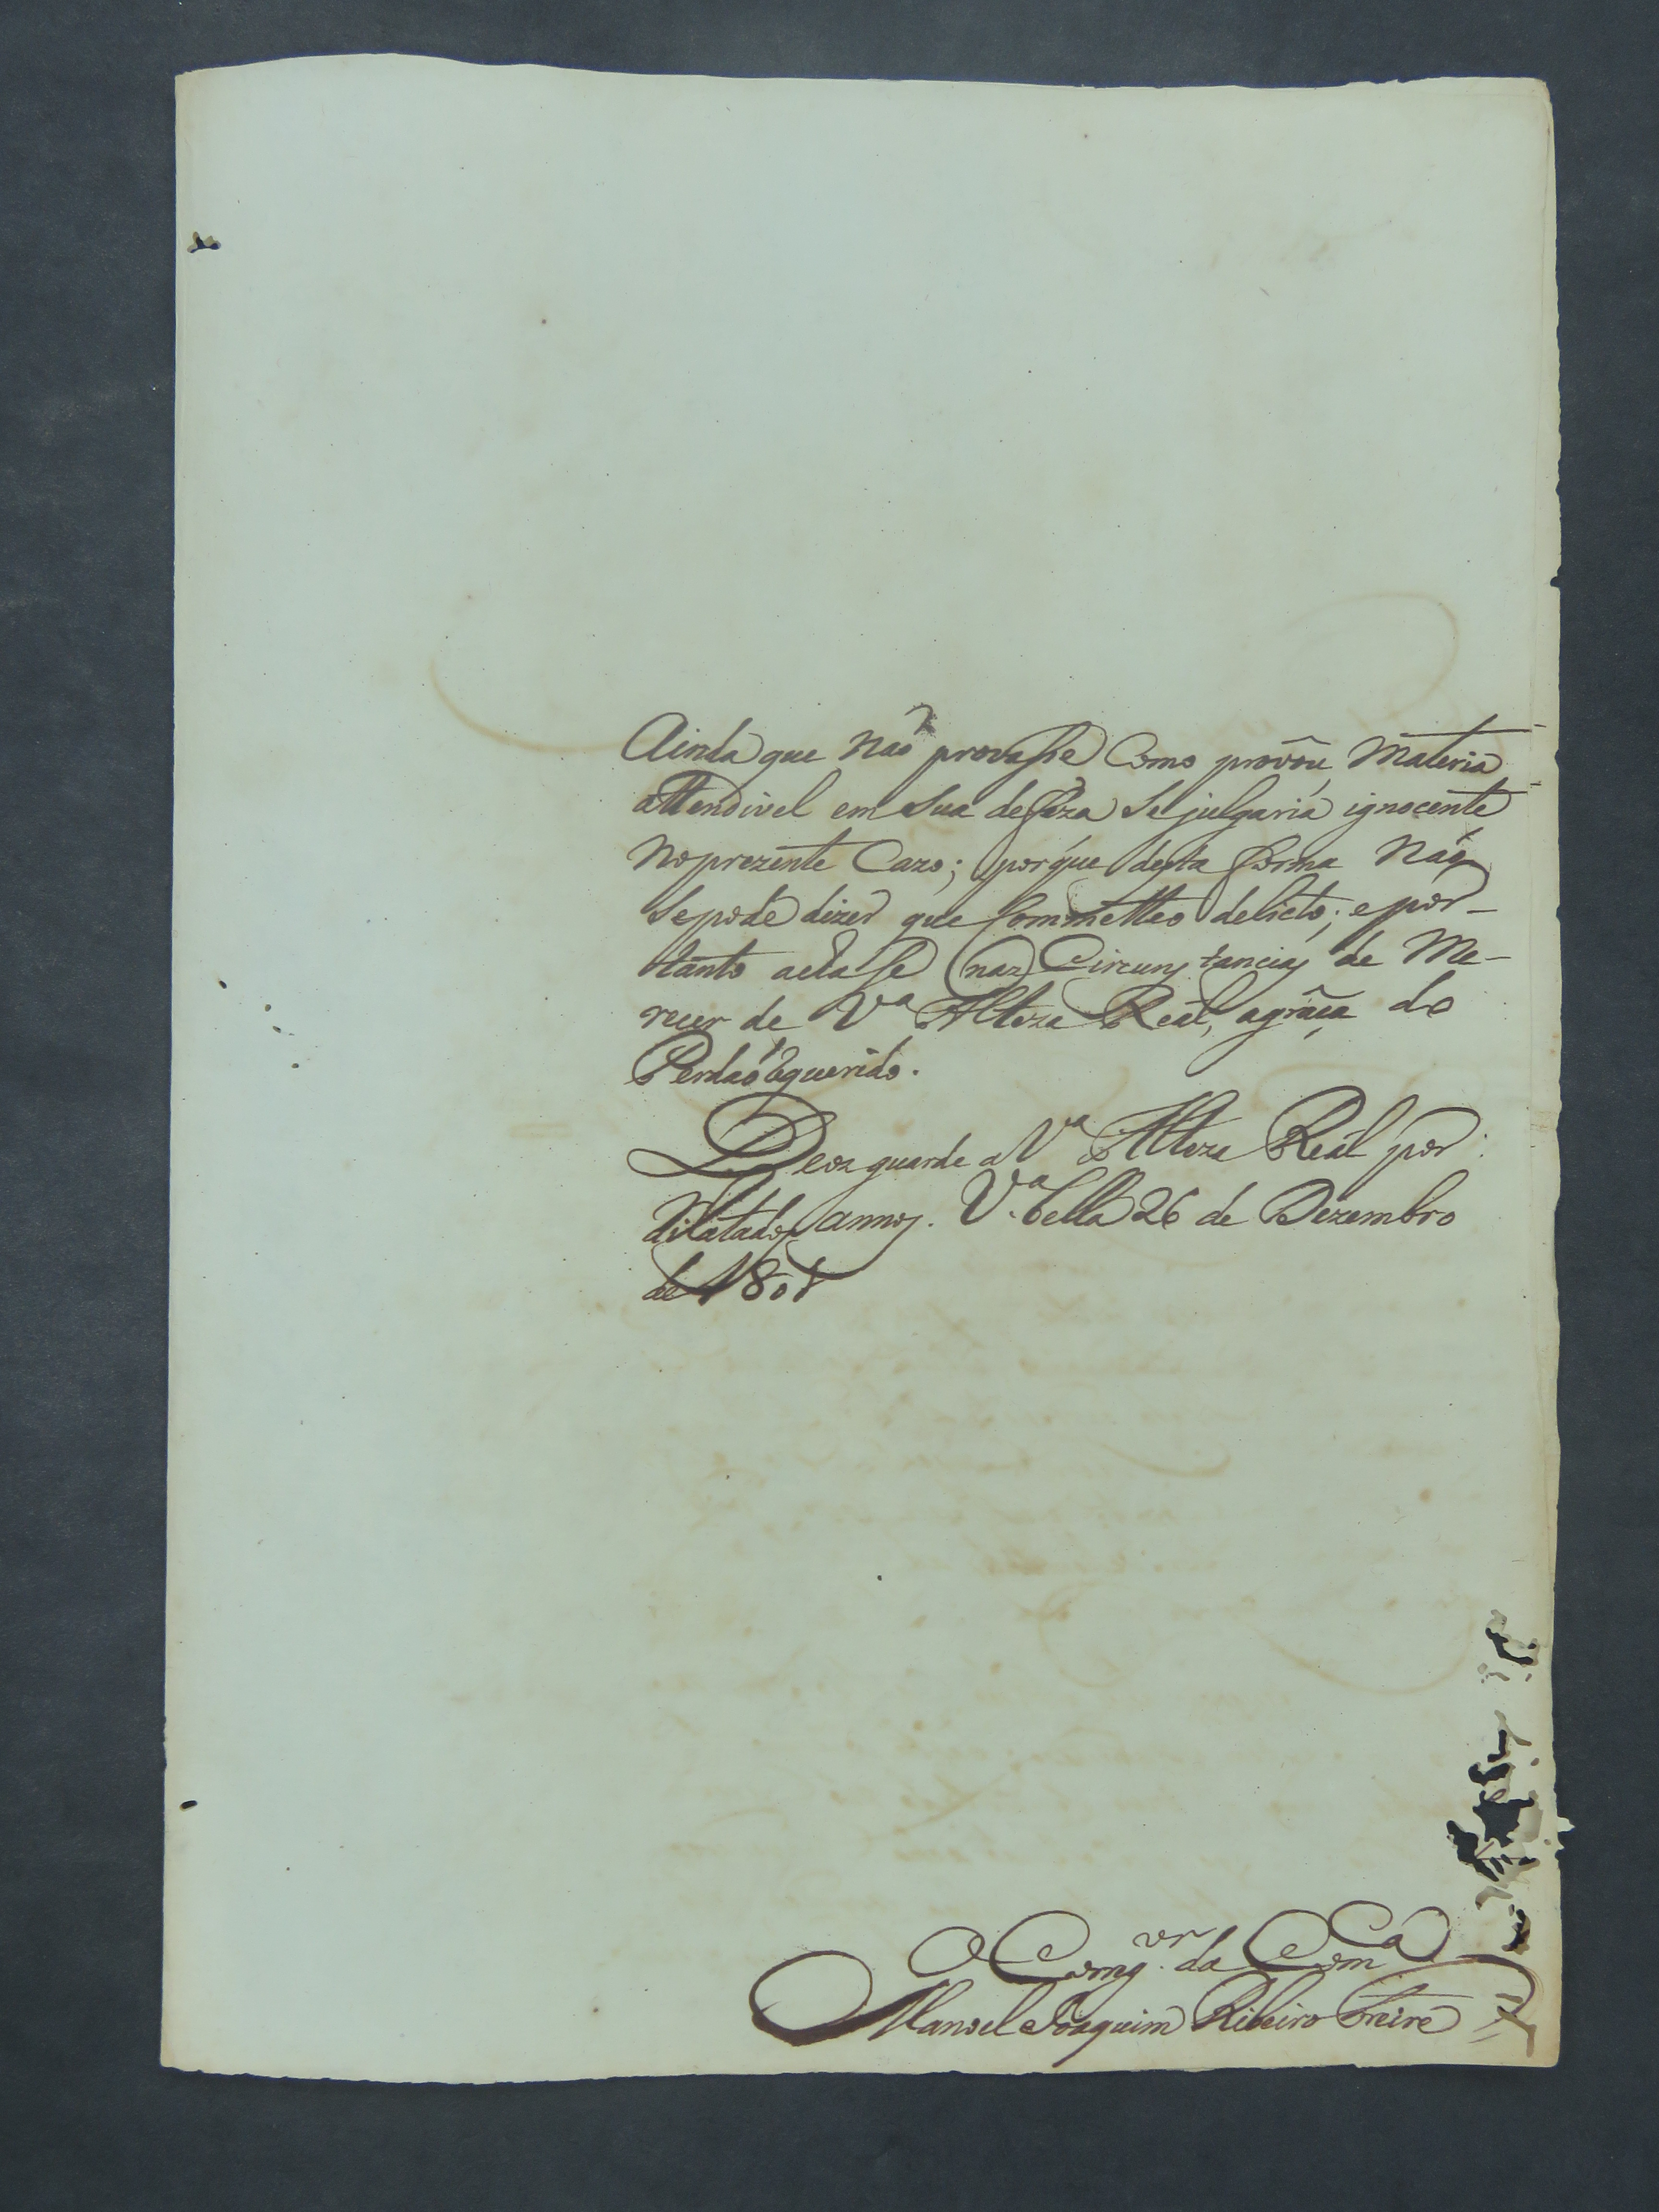 Ainda que Naõ provasse Como provou, Materia
attendivel em sua defeza se julgaria ignocente
No prezente Cazo; porque desta forma Não
se pode dizer que Commetteo delicto; e por-
tanto acha se nas Circunstancias de Me-
recer de Vª Alteza Real, a graça do
Perdaõ requerido.
Deoz guarde a Vª Alteza Real por
dilatados annos. Vª bella 26 de Dezembro
de 1801
O Ouv.or da Comª
Manoel Joaquim Ribeiro Freire